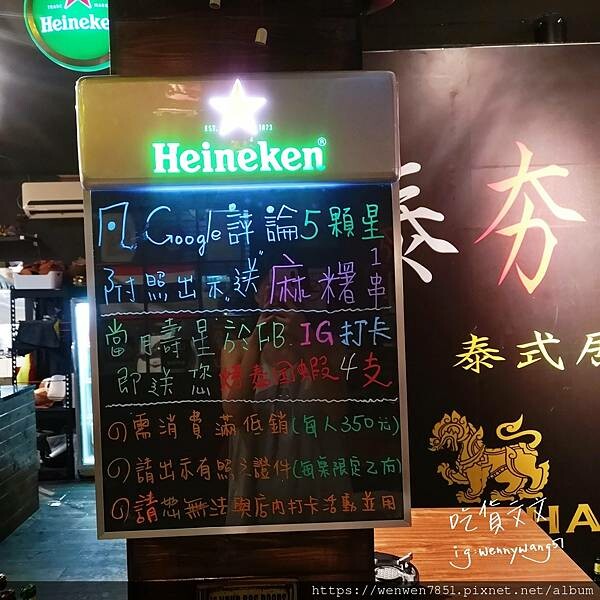 TRADE MARK
Heineken
EST. 1873
Heineken®
凡 Google評論5顆星
附照出示"送"麻糬1串
當月壽星於FB. IG打卡
即送您烤泰国蝦4支
(1)需消費滿低銷(每人350元)
(1)請出示有照之證件(每桌限定乙份)
(1)請恕無法與店內打卡活動並用
泰夯
泰式居
HA
吃貨文文
ig:wennywang51
https://wenwen7851.pixnet.net/album